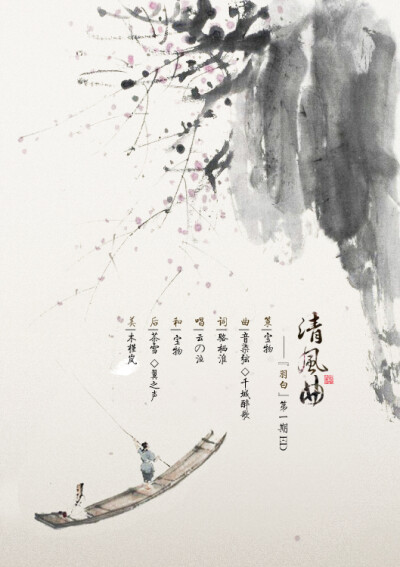 清風曲
——『羽白』第一期ED
策 宝物
曲 音染弦◇千城醉歌
词 骆栖淮
唱 云の泣
和 宝物
后 茶雪◇翼之声
美 木槿岚